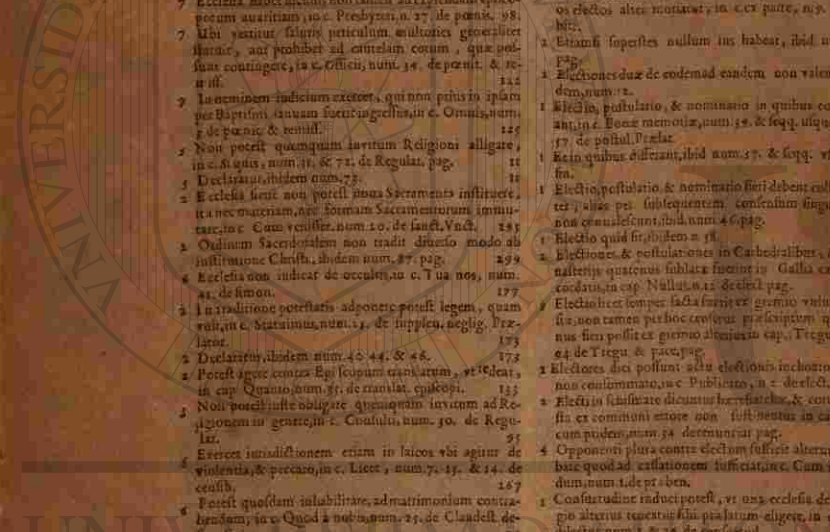 potum auaritiam, in c. Presbyteri, n. 27. de pœnis. 98.
7 Vbi vertitur salutis periculum
statuit, aut prohibet ad cautelam eorum, quæ pos-
sunt contingere, in c. Officii, num. 34. de pœnit. & re-
miss. 122
7 In neminem iudicium exercet, qui non prius in ipsam
per Baptismi ianuam fuerit ingressus, in c. Omnis, num.
de pœnit. & remiss. 125
5 Non potest quemquam inuitum Religioni alligare,
in c. Si quis, num. 11. & 72. de Regular. pag. 11
5 Declaratur, ibidem num. 72. 11
2 Ecclesia sicut non potest noua Sacramenta instituere,
ita nec materiam, nec formam Sacramentorum immu-
tare, in c. Cum venisset. num. 10. de sanct. Vnct. 295
2 Ordinem Sacerdotalem non tradit diuerso modo ab
institutione Christi, ibidem num. 87. pag. 299
6 Ecclesia non iudicat de occultis, in c. Tua nos, num.
41. de simon. 177
2 In traditione potestatis adponere potest legem, quam
vult, in c. Statuimus, num. 23. de supplen. neglig. Præ-
lator. 173
2 Declaratur, ibidem num. 40 44. & 46. 173
2 Potest agere contra Episcopum translatum, vt redeat,
in cap Quanto, num. de translat. episcopi. 133
5 Non potest iuste obligare quemquam inuitum ad Re-
ligionem in genere, in c. Consului, num. 30. de Regu-
lar. 95
6 Exercet iurisdictionem etiam in laicos vbi agitur de
violentia, & peccato, in c. Licet, num. 7. 15. & 14. de
censib. 267
6 Potest quosdam inhabilitare, ad matrimonium contra-
hendum, in c. Quod à nobis, num. 25. de Claudest. de-
os electos alter moriatur, in c. ex parte, n. 9.
2 Etiamsi superstes nullum ius habeat, ibid
pag.
1 Electiones duæ de eodem ad eandem non valen
dem, num. 12.
1 Electio, postulatio, & nominatio in quibus co
ant, in c. Bonæ memoriæ, num. 39. & seqq. vsq
57. de postul. Prælat.
1 Et in quibus differant, ibid num. 57. & seqq.
fin.
1 Electio, postulatio & nominatio fieri debent col
ter, alias per subsequentem consensum singu
non conualescunt, ibid. num 46. pag.
1 Electio quid sit, ibidem n. 58.
2 Electiones & postulationes in Cathedralibus,
nasteriis quatenus sublatæ fuerint in Gallia
cordatis, in cap. Nullus. n. 12 de elect pag.
Electio licet semper facta fuerit ex gremio
non tamen per hoc censetur præscriptum
nus fieri possit ex gremio alterius in cap. Treg
de Tregu & pace, pag.
1 Electores dici possunt actu electionis inchoato
non consummato, in c Publicato, n 2 de elect
2 Electi in schismate dicuntur
sia ex communi errore non sustinentur in ca
cum pridem, num. 54 de renuntiat pag.
4 Opponenti plura contra electum sufficit
bare quod ad cassationem sufficiat, in c. Cum
dum, num. 1. de præben.
1 Consuetudine induci potest, vt vna ecclesia de
mio alterius teneatur sibi prælatum eligere, in
UNIVERSID